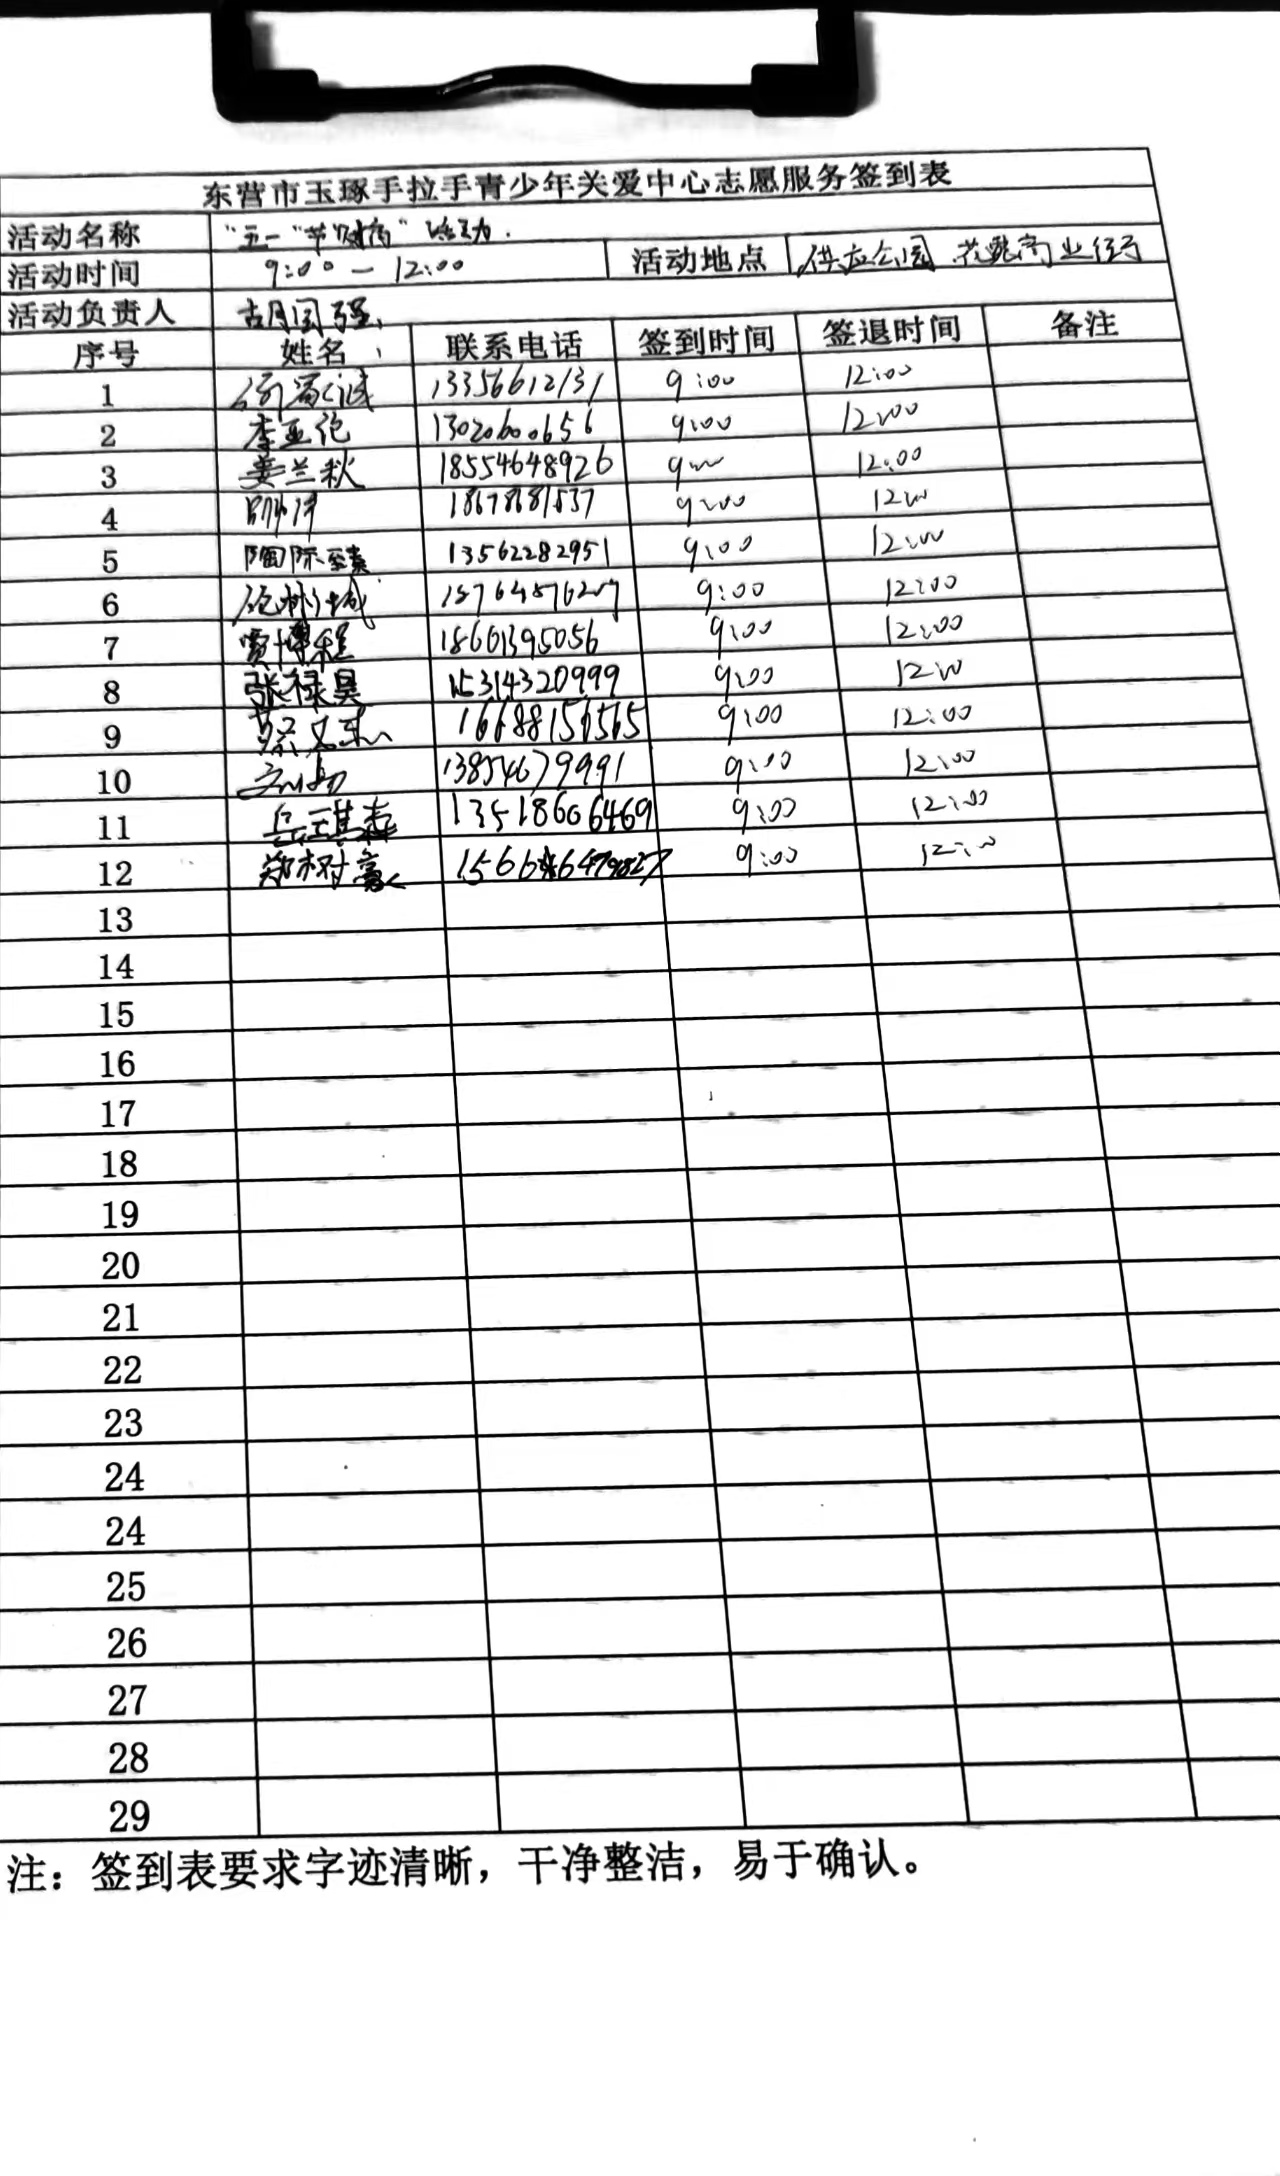 东营市玉琢手拉手青少年关爱中心志愿服务签到表
活动名称 "五一"节 活动.
活动时间 9:00 — 12:00 活动地点 供应公园
活动负责人 胡国强
序号 姓名 联系电话 签到时间 签退时间 备注
1 13356612131 9:00 12:00
2 李亚伦 13020600656 9:00 12:00
3 姜兰秋 18554648926 9:00 12:00
4 18678681537 9:00 12:00
5 陶际臻 13562282951 9:00 12:00
6 9:00 12:00
7 贾博程 18601395056 9:00 12:00
8 张禄昊 15314320999 9:00 12:00
9 16688156565 9:00 12:00
10 13854679991 9:00 12:00
11 岳琪森 13518606469 9:00 12:00
12 郑树豪 9:00 12:00
13
14
15
16
17
18
19
20
21
22
23
24
24
25
26
27
28
29
注：签到表要求字迹清晰，干净整洁，易于确认。